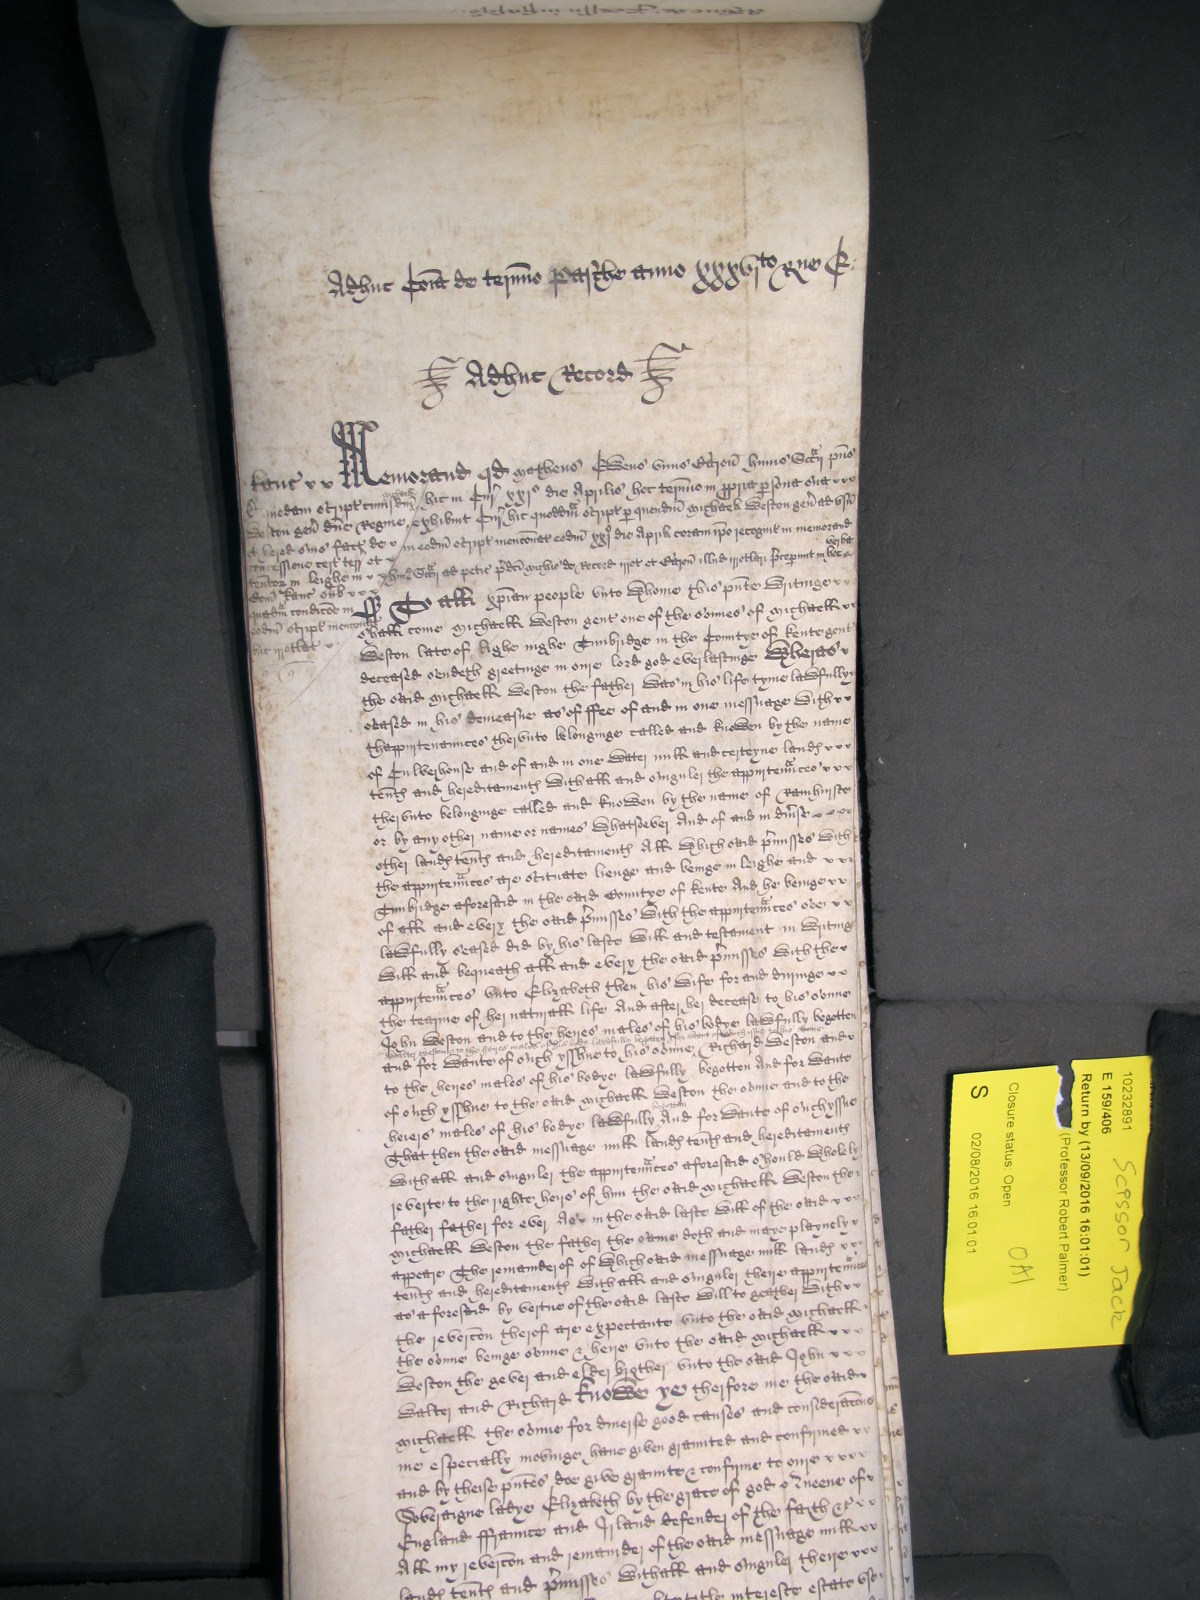 Adhuc Coia de termino Pasche anno xxxvjto Rne E.
Adhuc Record
Kanc
Memorand qd Matheus Ewens unus Baron huius Scacij pns
hic in Cur xxjo die Aprilis hoc termino in propria persona sua
exhibuit Cur hic quoddam script per quendam Michaelem Weston gen ad
in eodem script mencionat eodem xxjo die April coram ipo recognit in memorand
huius Scacij ad petic pdci Michis de Record irrot et Baron illud irrotlari preceperunt in hec verba
To all xpian people unto whome this pnte writinge
shall come Michaell Weston gent one of the sonnes of Michaell
Weston late of Lighe nighe Tunbridge in the Countye of Kente gent
deceased sendeth greetinge in oure lord god everlastinge Wheras
the said Michaell Weston the father was in his life tyme lawfully
seased in his demeasne as of ffee of and in one messuage with
thappurtenaunces therunto belonginge called and knowen by the name
of Culverhouse and of and in one water mill and certeyne lands
tents and hereditaments withall and singuler the appurtenances
therunto belonginge called and knowen by the name of Ramhurste
or by any other name or names whatsoever And of and in diverse
other lands tents and hereditaments All which said pmisses with
the appurtenances are scituate lienge and beinge in Leighe and
Tunbridge aforesaid in the said Countye of Kente And he beinge
of all and every the said pmisses with the appurtenances soe
lawfully seased did by his laste will and testament in writinge
will and bequeath all and every the said pmisses with the
appurtenances unto Elizabeth then his wife for and duringe
the tearme of her naturall life And after her decease to his sonne
John Weston and to the heyres males of his bodye lawfully begotten
and for wante of such yssue to his sonne Richard Weston and
to the heyres males of his bodye lawfully begotten And for wante
of such yssue to the said Michaell Weston the sonne and to the
heyres males of his bodye lawfully begotten And for wante of such yssue
That then the said messuage mill lands tents and hereditaments
withall and singuler the appurtenances aforesaid should wholely
reverte to the righte heirs of him the said Michaell Weston the
father father for ever As in the said laste will of the said
Michaell Weston the father the same doth and maye playnely
appeare The remainder of which said messuage mill lands
tents and hereditaments withall and singuler there appurtenances
as aforesaid by vertue of the said laste will together with
the revercon therof are expectante unto the said Michaell
the sonne beinge sonne & heire unto the said Michaell
Weston the gever and elder brother unto the said John
Walter and Richard Knowe ye therfore me the said
Michaell the sonne for diverse good causes and consideracons
me especially movinge have given graunted and confirmed
and by theise pntes doe give graunte & confirme to oure
Soveraigne ladye Elizabeth by the grace of god Queene of
England ffraunce and Irland defender of the faith &c
All my revercon and remainder of the said messuage mill
lands tents and pmisses withall and singuler there
title intereste estate use
10232891
E 159/406
Return by (13/09/2016 16:01:01)
(Professor Robert Palmer)
Closure status: Open
S
02/08/2016 16:01:01
Scissor Jack
OA1